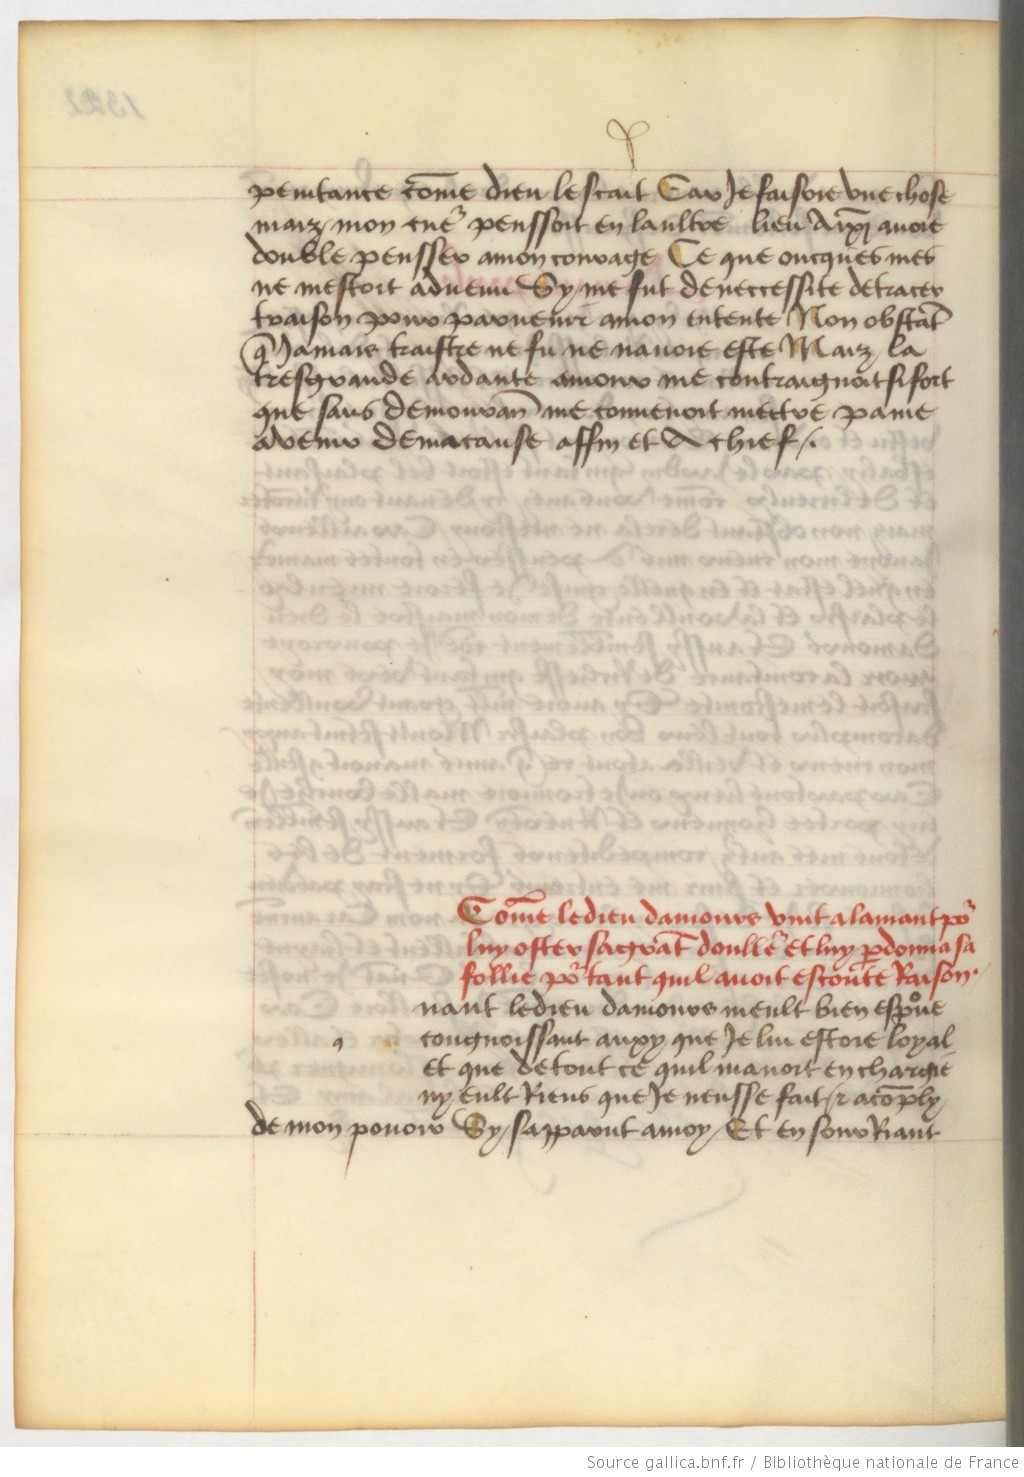 penitance cōme dieu lescait Car Je faisoie vne chose
maiz / mon cuer penssoit en laultre lieu Ainsi auoie
double pensser amon courage Ce que oncques mes
ne mestoit aduenu Sy / me fut deneccessite detracer
traison pour paruenir amon entente Non obstāt
q̄ Jamais traistre ne fu ne nauoie este Maiz / la
tresgrande ardante amour me contraignoit si fort
que sans demourāce me conuenoit mettre paine
avenir demacause affin et A chief / .
Cōme ledieu damours vint alamant po'
luy oster sagrāt doulle' et luy pardonna sa
follie po' tant quil auoit escoute Raison .
nant ledieu damours meult bien espoue
congnoissant auxy que Je lui estoie loyal
et que detout ce quil mauoit enchargie
ny eult Riens que Je neusse fait / et acōply /
de mon pouoir Sy / sapparut amoy / Et en sourRiant
Source gallica.bnf.fr / Bibliothèque nationale de France